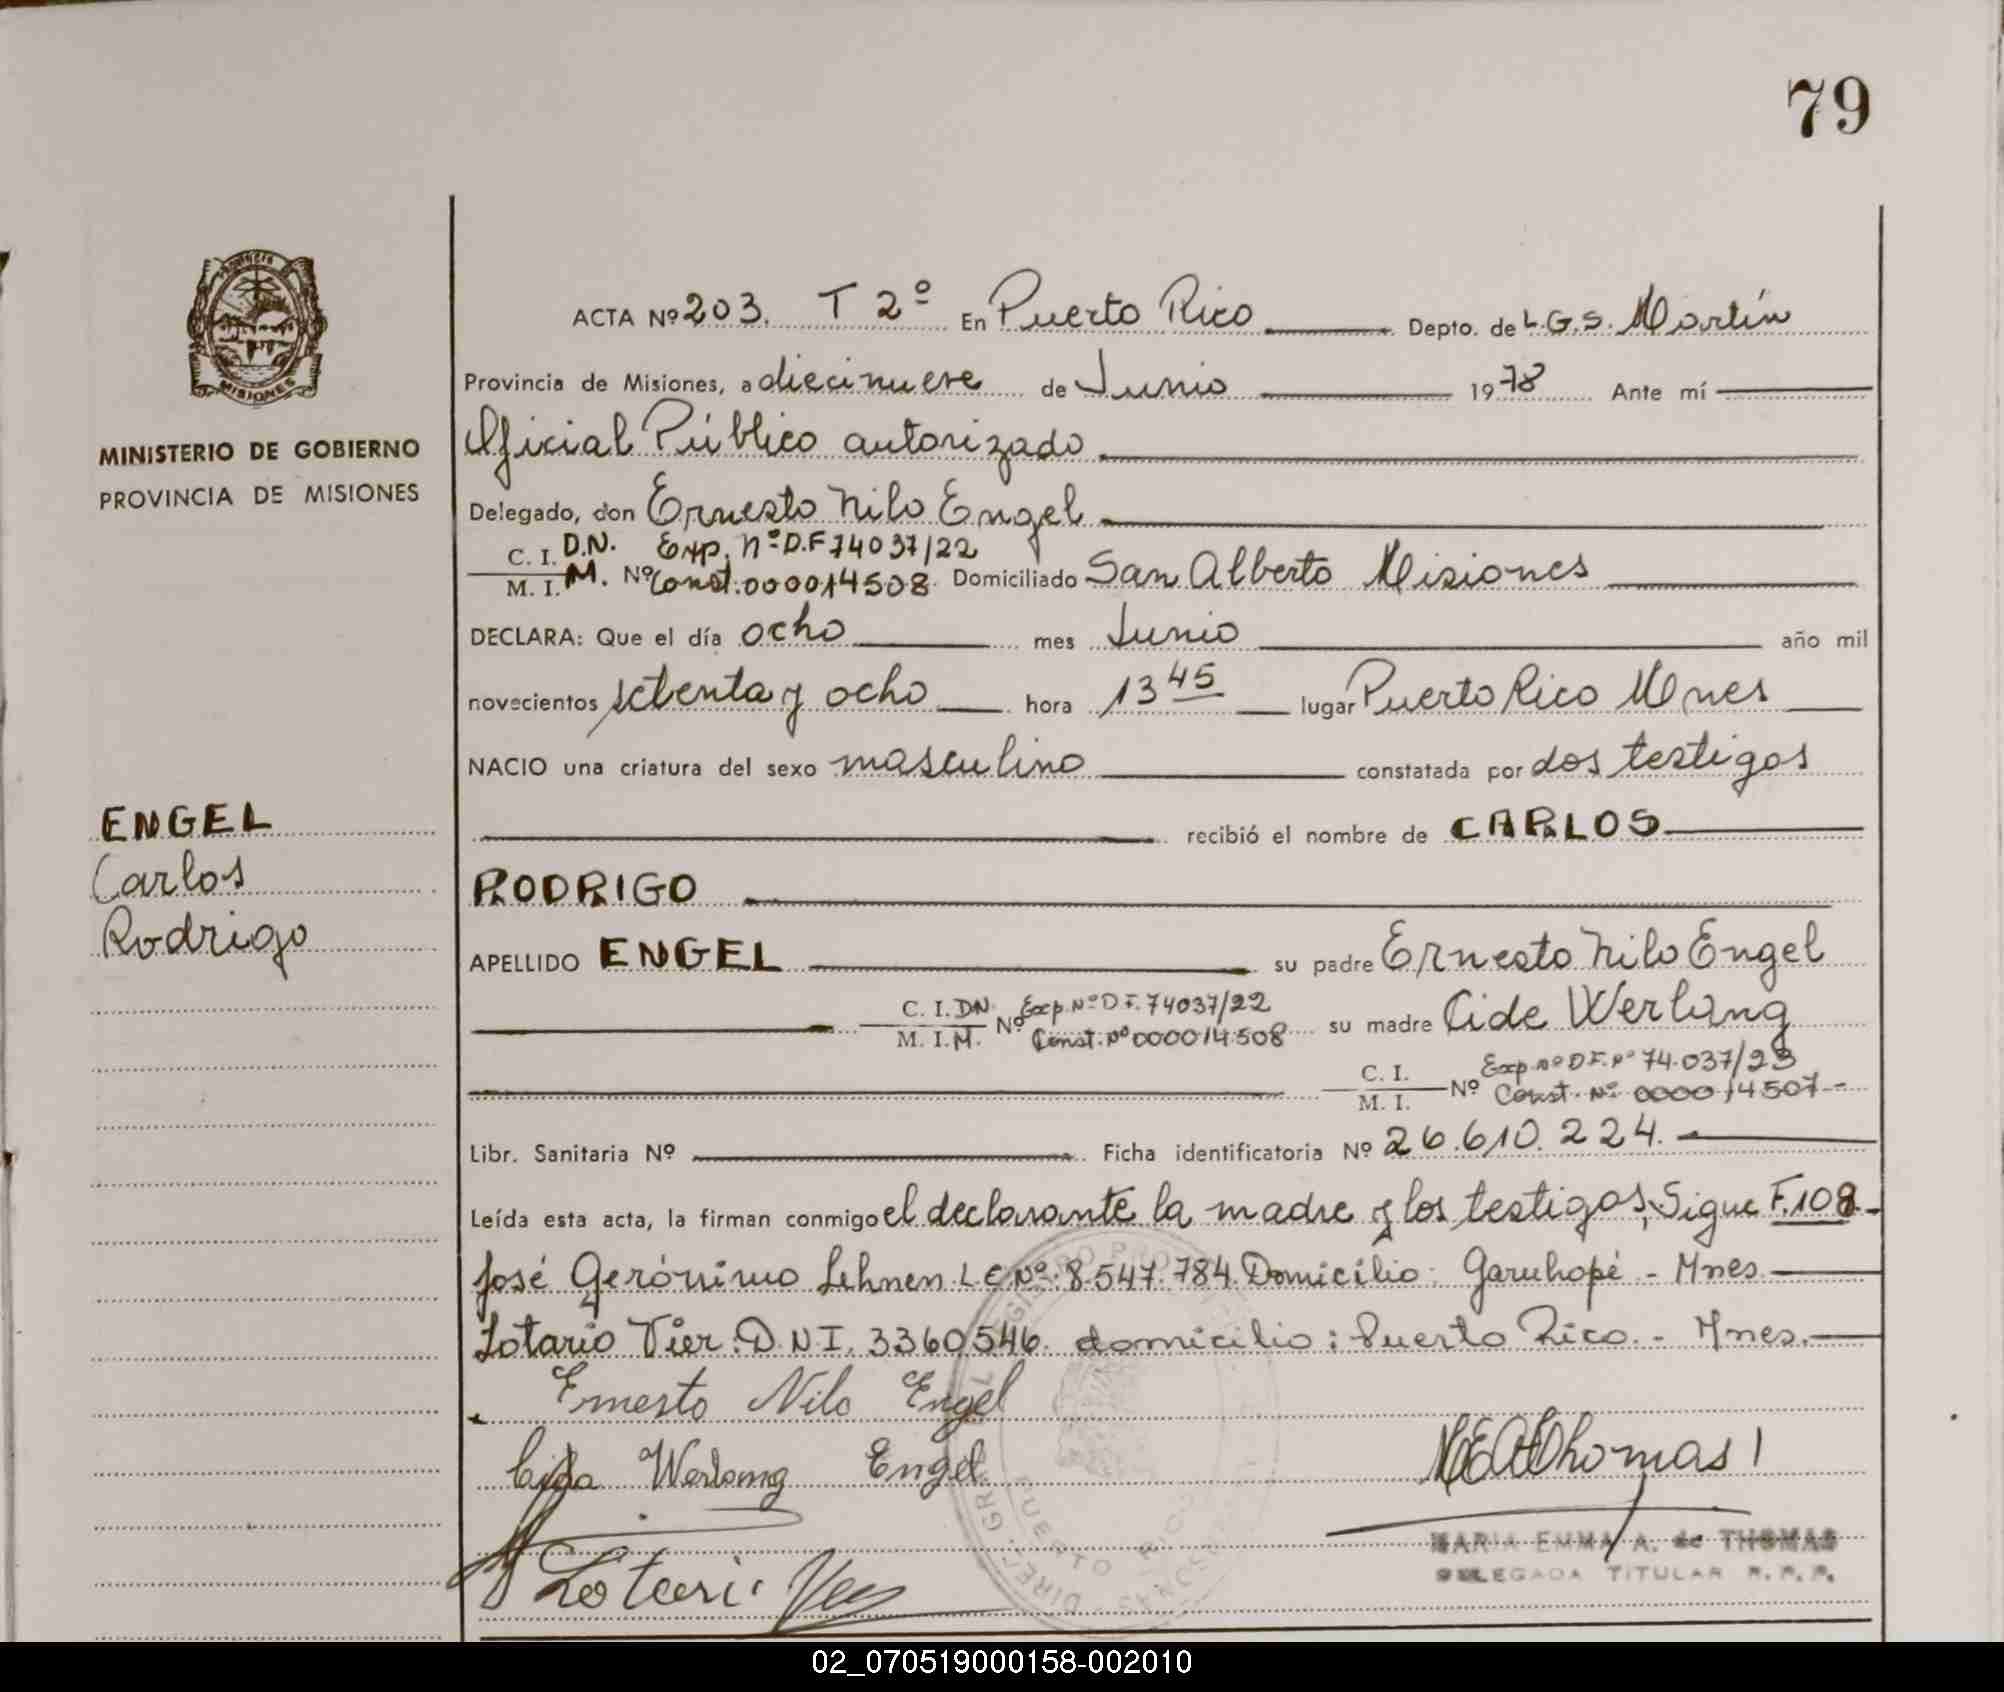 79
PROVINCIA
MISIONES
MINISTERIO DE GOBIERNO
PROVINCIA DE MISIONES
ENGEL
Carlos
Rodrigo
ACTA Nº 203. T 2º En Puerto Rico Depto. de L.G.S. Martín
Provincia de Misiones, a diecinueve de Junio 1978 Ante mí
Oficial Público autorizado
Delegado, don Ernesto Nilo Engel
C. I. D.N. Exp. Nº D.F 74037/22
M. I. M. Nº Const. 000014508 Domiciliado San Alberto Misiones
DECLARA: Que el día ocho mes Junio año mil
novecientos setenta y ocho hora 13 45 lugar Puerto Rico Mnes
NACIO una criatura del sexo masculino constatada por dos testigos
recibió el nombre de CARLOS
RODRIGO
APELLIDO ENGEL su padre Ernesto Nilo Engel
C. I. DN. Exp. Nº D F. 74037/22
M. I. M. Nº Const. Nº 000014508 su madre Cide Werlang
C. I. Exp. nº D F. Nº 74.037/23
M. I. Nº Const. Nº 000014507 -
Libr. Sanitaria Nº Ficha identificatoria Nº 26.610.224.
Leída esta acta, la firman conmigo el declarante la madre y los testigos, Sigue F. 108.-
José Gerónimo Lehnen. L E Nº: 8.547.784. Domicilio: Garuhopé - Mnes
Lotario Vier. D.N.I. 3360546. domicilio: Puerto Rico. - Mnes.
Ernesto Nilo Engel
Cida Werlang Engel
Thomas
MARIA EMMA A. de THOMAS
DELEGADA TITULAR R. P. P.
Lotario Vier
PUERTO RICO
02_070519000158-002010